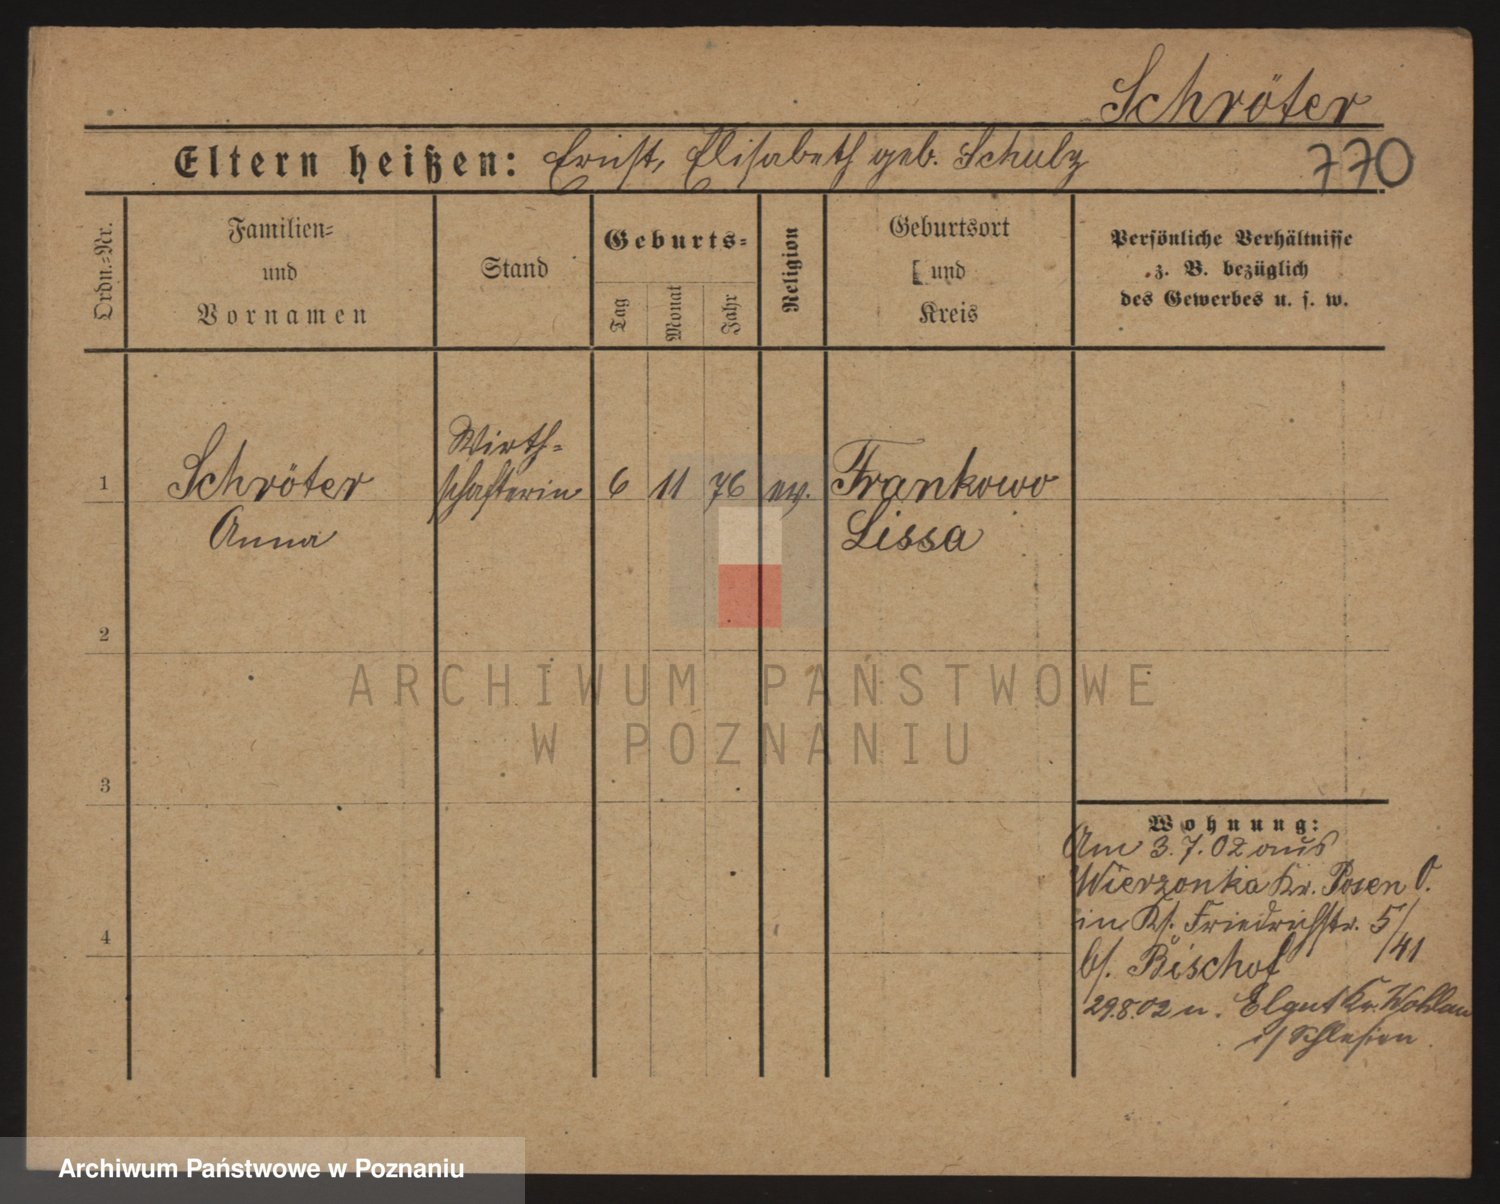 Schröter
Eltern heißen: Ernst, Elisabeth geb. Schulz
770
Ordn.=Nr.
Familien=
und
Vornamen
Stand
Geburts=
Tag
Monat
Jahr
Religion
Geburtsort
und
Kreis
Persönliche Verhältnisse
z. B. bezüglich
des Gewerbes u. s. w.
Wirth=
1 Schröter schafterin 6 11 76 ev. Frankowo
Anna Lissa
2
3
4
Wohnung:
Am 3.7.02 aus
Wierzonka Kr. Posen O.
in Ks. Friedrichstr. 5/
/41
b/. Bischof
29.8.02 n. Elgut Kr. Wohlau
i/ Schlesien
ARCHIWUM PAŃSTWOWE
W POZNANIU
Archiwum Państwowe w Poznaniu